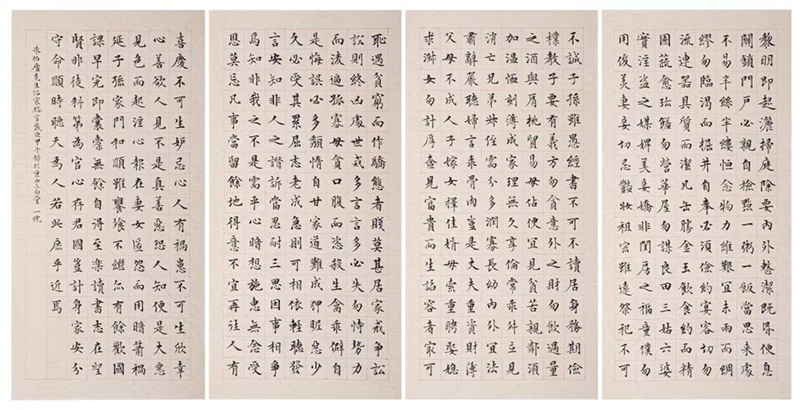 黎明即起灑掃庭除要內外整潔既昏便息
關鎖門戶必親自檢點一粥一飯當思來處
不易半絲半縷恒念物力維艱宜未雨而綢
繆勿臨渴而掘井自奉必須儉約宴客切勿
流連器具質而潔瓦缶勝金玉飲食約而精
園蔬愈珍饈勿營華屋勿謀良田三姑六婆
實淫盜之媒婢美妾嬌非閨房之福童僕勿
用俊美妻妾切忌艷妝祖宗雖遠祭祀不可
不誠子孫雖愚經書不可不讀居身務期儉
樸教子要有義方勿貪意外之財勿飲過量
之酒與肩挑貿易毋佔便宜見貧苦親鄰須
加溫恤刻薄成家理無久享倫常乖舛立見
消亡兄弟叔侄需分多潤寡長幼內外宜法
肅辭嚴聽婦言乖骨肉豈是丈夫重資財薄
父母不成人子嫁女擇佳婿毋索重聘娶媳
求淑女勿計厚奩見富貴而生諂容者最可
恥遇貧窮而作驕態者賤莫甚居家戒爭訟
訟則終凶處世戒多言言多必失勿恃勢力
而凌逼孤寡毋貪口腹而恣殺生禽乖僻自
是悔誤必多頹惰自甘家道難成狎昵惡少
久必受其累屈志老成急則可相依輕聽發
言安知非人之譖訴當忍耐三思因事相爭
焉知非我之不是需平心暗想施惠無念受
恩莫忘凡事當留餘地得意不宜再往人有
喜慶不可生妒忌心人有禍患不可生欣幸
心善欲人見不是真善惡恐人知便是大惡
見色而起淫心報在妻女匿怨而用暗箭禍
延子孫家門和順雖饔飧不繼亦有餘歡國
課早完即囊橐無餘自得至樂讀書志在聖
賢非徒科第為官心存君國豈計身家安分
守命順時聽天為人若此庶乎近焉
朱柏廬先生治家格言歲次甲午錄於 三白堂 一悅